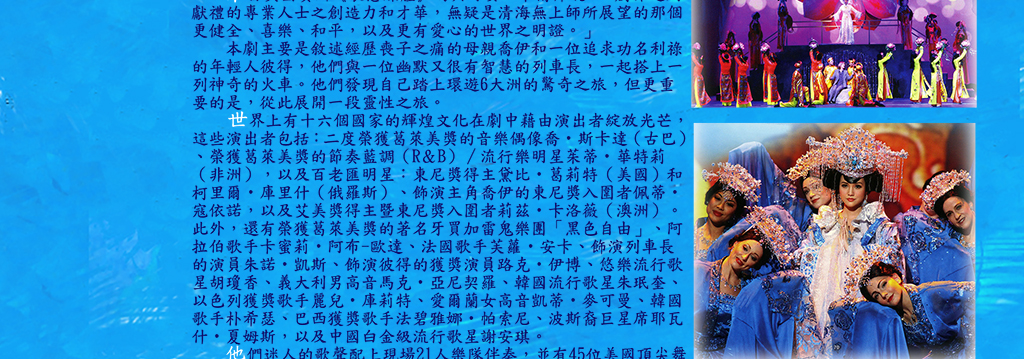 獻禮的專業人士之創造力和才華，無疑是清海無上師所展望的那個
更健全、喜樂、和平，以及更有愛心的世界之明證。」
本劇主要是敘述經歷喪子之痛的母親喬伊和一位追求功名利祿
的年輕人彼得，他們與一位幽默又很有智慧的列車長，一起搭上一
列神奇的火車。他們發現自己踏上環遊6大洲的驚奇之旅，但更重
要的是，從此展開一段靈性之旅。
世界上有十六個國家的輝煌文化在劇中藉由演出者綻放光芒，
這些演出者包括：二度榮獲葛萊美獎的音樂偶像喬・斯卡達（古巴）
、榮獲葛萊美獎的節奏藍調（R&B）／流行樂明星茱蒂・華特莉
（非洲），以及百老匯明星：東尼獎得主黛比・葛莉特（美國）和
柯里爾・庫里什（俄羅斯）、飾演主角喬伊的東尼獎入圍者佩蒂・
寇依諾，以及艾美獎得主暨東尼獎入圍者莉茲・卡洛薇（澳洲）。
此外，還有榮獲葛萊美獎的著名牙買加雷鬼樂團「黑色自由」、阿
拉伯歌手卡蜜莉・阿布-歐達、法國歌手芙蘿・安卡、飾演列車長
的演員朱諾・凱斯、飾演彼得的獲獎演員路克・伊博、悠樂流行歌
星胡瓊香、義大利男高音馬克・亞尼契羅、韓國流行歌星朱珉奎、
以色列獲獎歌手麗兒・庫莉特、愛爾蘭女高音凱蒂・麥可曼、韓國
歌手朴希瑟、巴西獲獎歌手法碧雅娜・帕索尼、波斯裔巨星席耶瓦
什・夏姆斯，以及中國白金級流行歌星謝安琪。
他們迷人的歌聲配上現場21人樂隊伴奏，並有45位美國頂尖舞